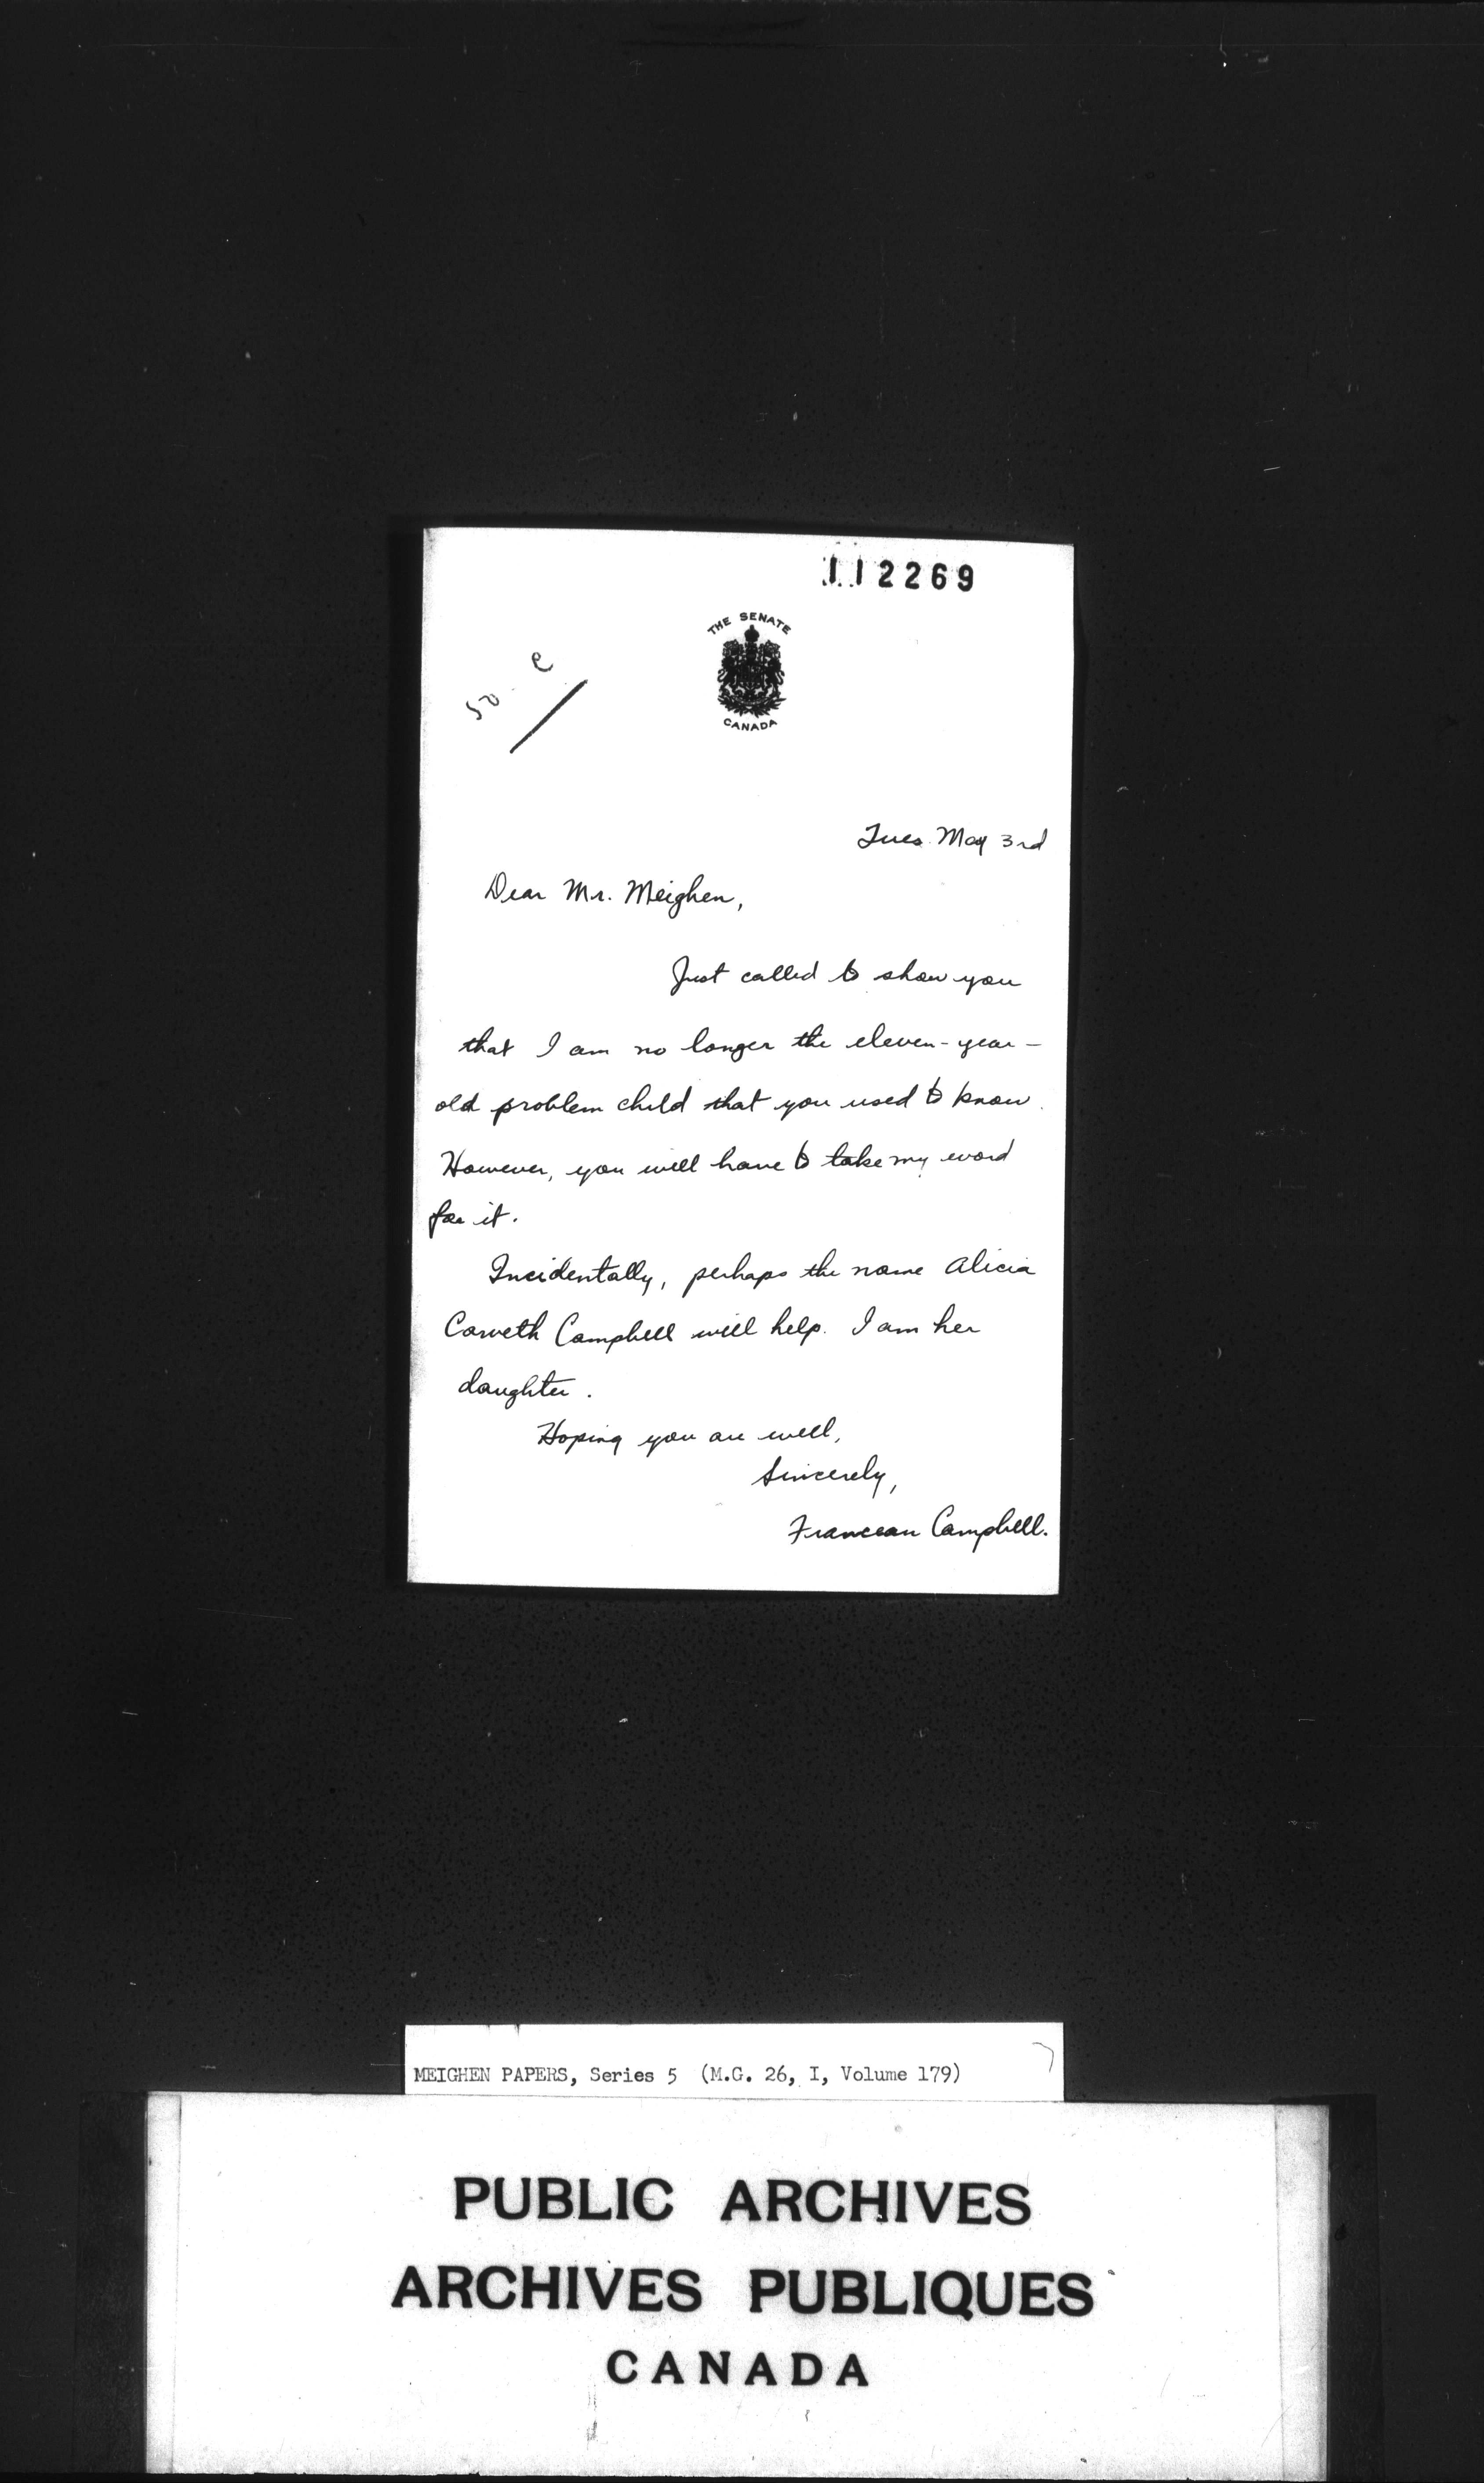 112269
THE SENATE
CANADA
50 e
Tues. May 3rd
Dear Mr. Meighen,
Just called to show you
that I am no longer the eleven-year-
old problem child that you used to know.
However, you will have to take my word
for it.
Incidentally, perhaps the name Alicia
Carveth Campbell will help. I am her
daughter.
Hoping you are well,
Sincerely,
Francean Campbell.
MEIGHEN PAPERS, Series 5 (M.G. 26, I, Volume 179)
PUBLIC ARCHIVES
ARCHIVES PUBLIQUES
CANADA